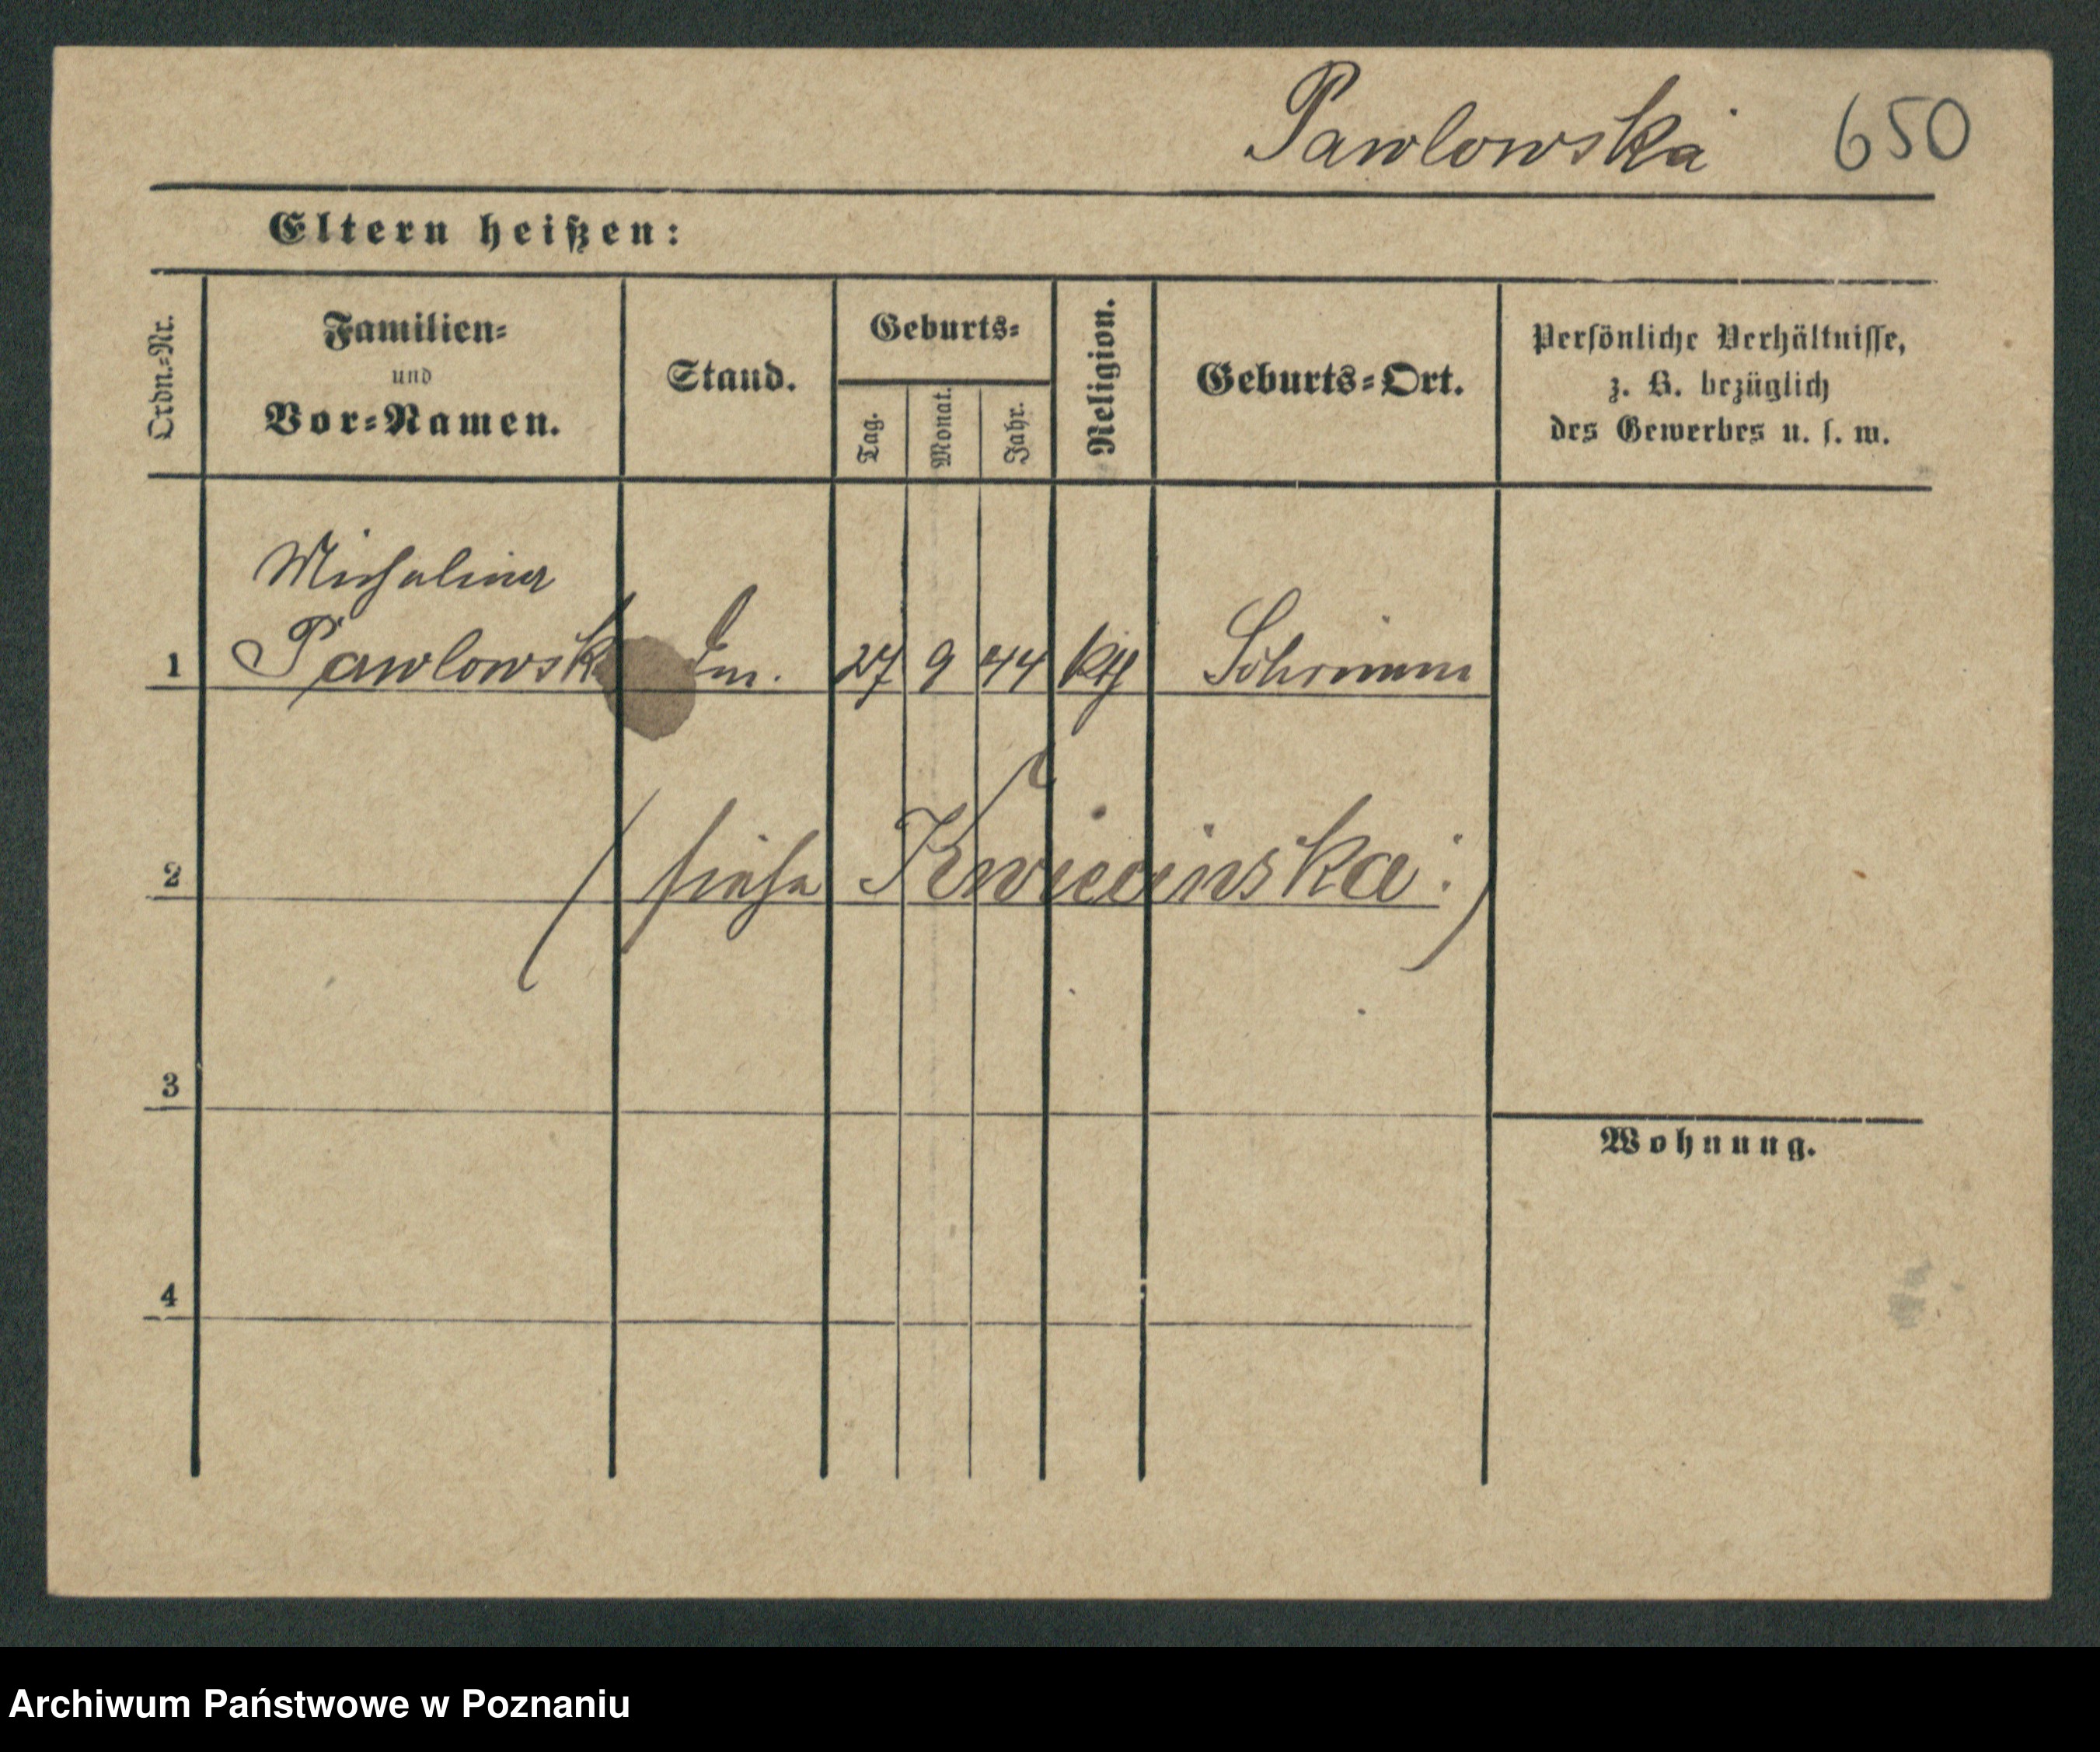 Pawlowska 650
Eltern heißen:
Ordn.=Nr.
Familien=
und
Vor=Namen.
Stand.
Geburts=
Tag.
Monat.
Jahr.
Religion.
Geburts=Ort.
Persönliche Verhältnisse,
z. B. bezüglich
des Gewerbes u. s. w.
Michalina
1 Pawlowsk 27 9 44 kth Schrimm
2 (siehe Kwiecinska:)
3
Wohnung.
4
Archiwum Państwowe w Poznaniu